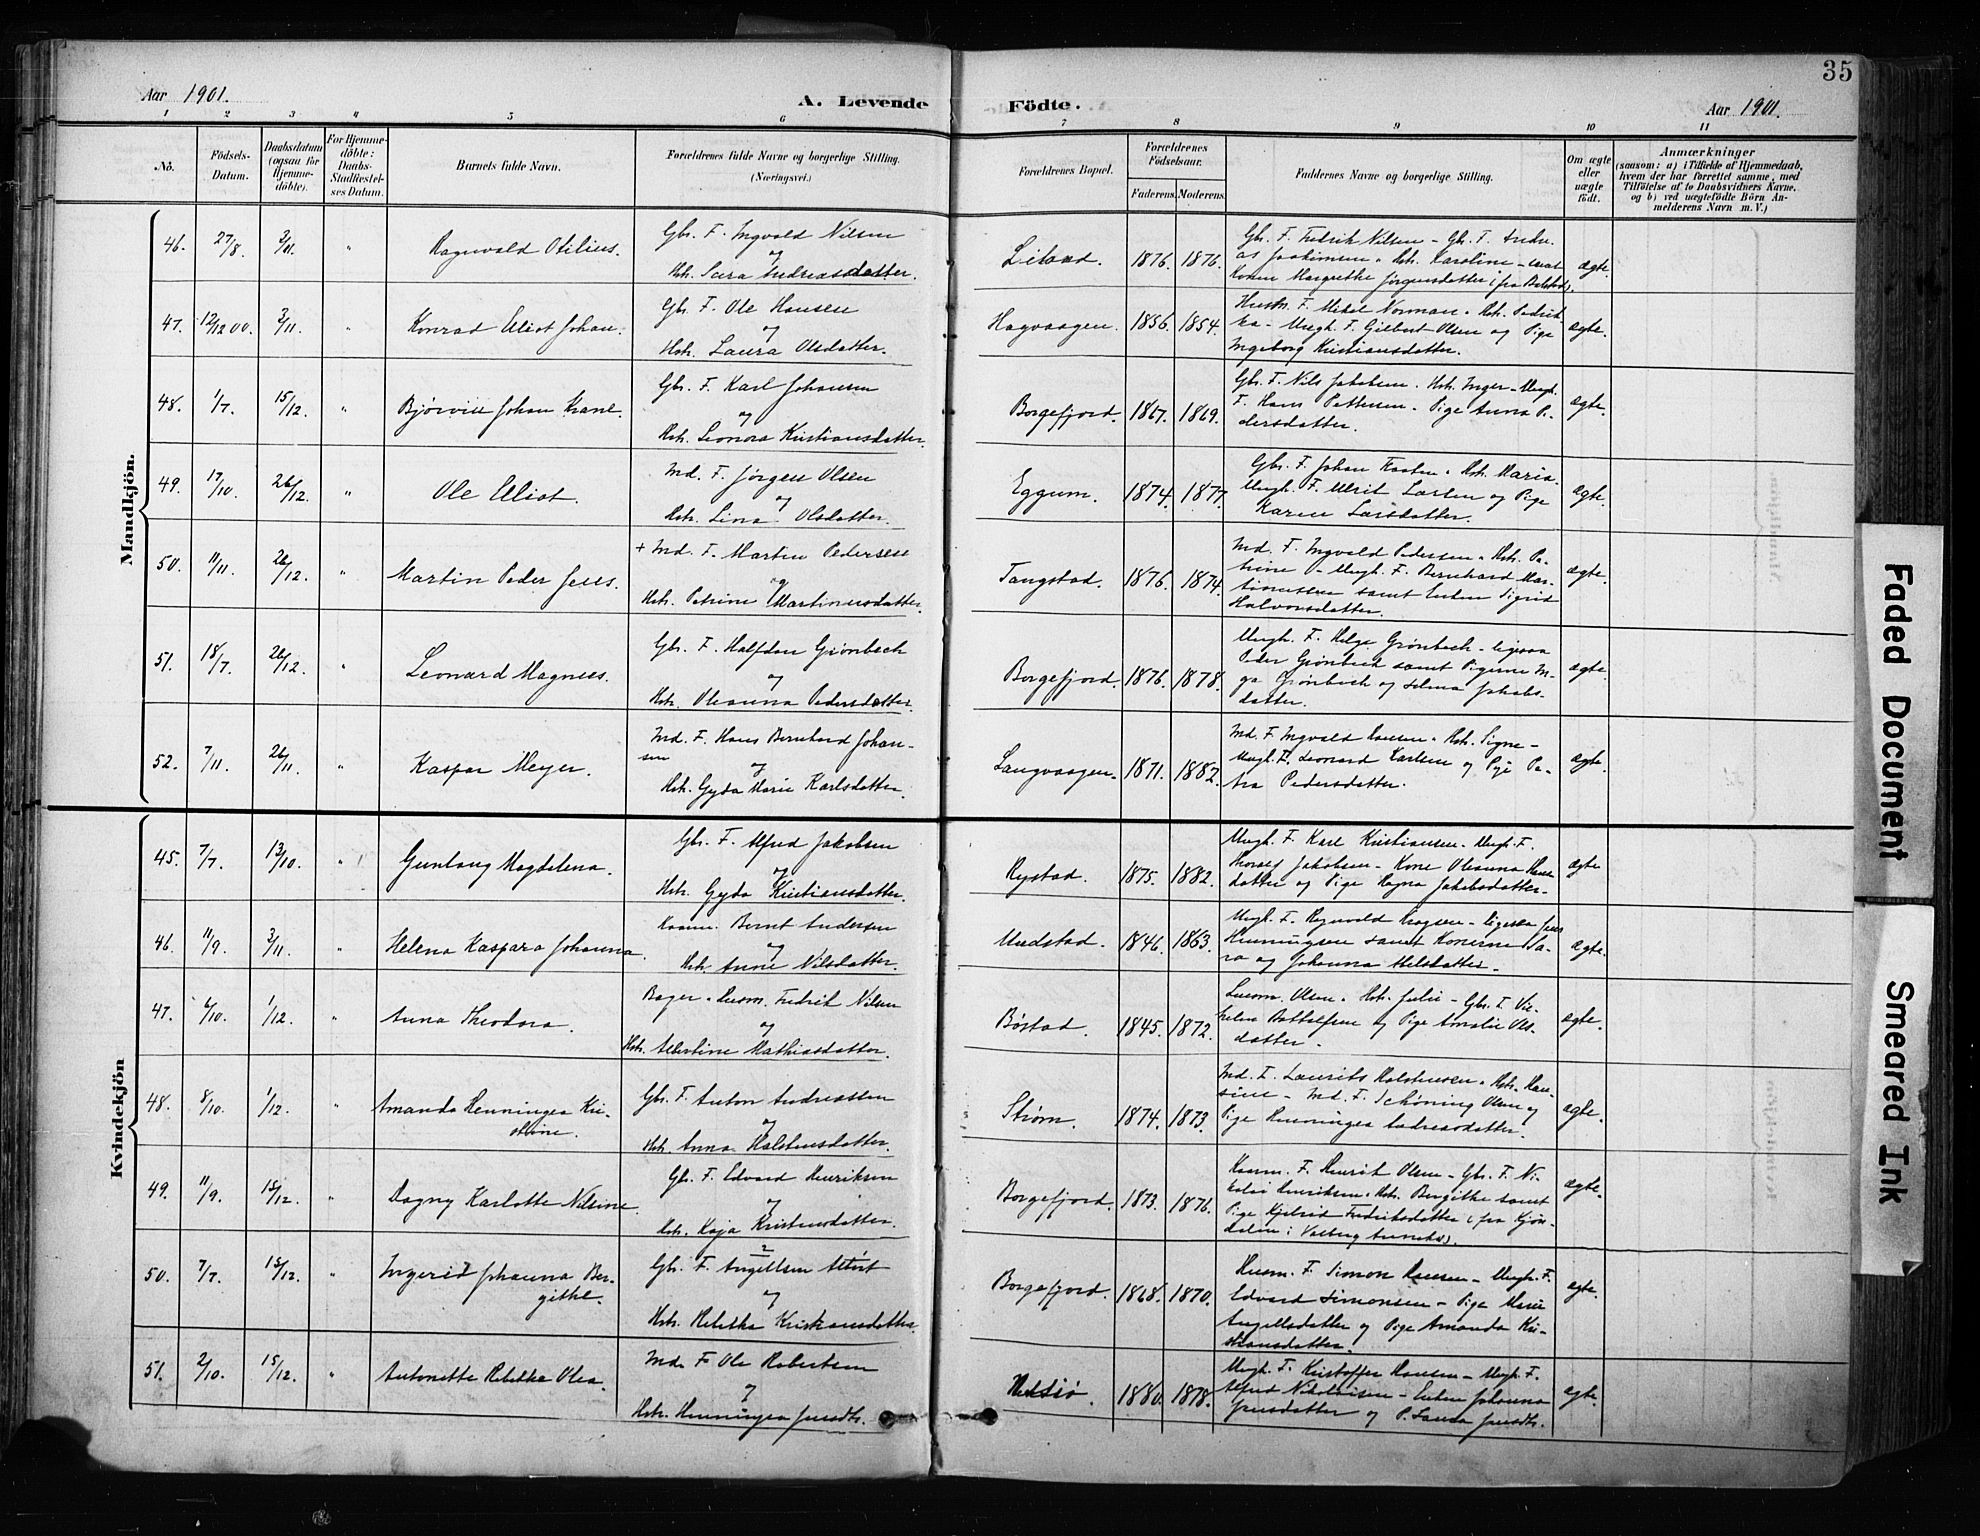 35
Aar 1901.
A. Levende Födte.
Aar 1901.
1 2 3 4 5 6 7 8 9 10 11
No.
Födsels-
Datum.
Daabsdatum
(ogsaa for
Hjemme-
döbte).
For Hjemme-
döbte:
Daabs-
Stadfæstel-
ses Datum.
Barnets fulde Navn.
Forældrenes fulde Navne og borgerlige Stilling.
(Næringsvei.)
Forældrenes Bopæl.
Forældrenes
Födselsaar.
Faderens. Moderens.
Faddernes Navne og borgerlige Stilling.
Om ægte
eller
uægte
födt.
Anmærkninger
(saasom: a) i Tilfælde af Hjemmedaab,
hvem der har forrettet samme, med
Tilföielse af to Daabsvidners Navne,
og b) ved uægtefödte Börn An-
melderens Navn m. V.)
Mandkjön.
46. 27/8. 3/11. "
Ragnvald Otilius.
Gbr. F. Ingvald Nilsen
og
Hst. Sara Andreasdatter.
Lilaad. 1876. 1876.
Gbr. F. Fredrik Nilsen - Gbr. F. Andre-
as Joakimsen, Hst. Karoline - samt
Konen Margrethe Jörgensdatter (fra Balstad).
ægte.
47. 12/12 00. 3/11. "
Konrad Eliot Johan.
Gbr. F. Ole Hansen
og
Hst. Laura Olsdatter.
Hagvaagen. 1856. 1854.
Husm. F. Mikal Norman, Hst. Fredrik-
ka - Ungk. F. Gilbert Olsen og Pige
Ingeborg Kristiansdatter.
ægte.
48. 1/7. 15/12. "
Bjørvill Johan Krane.
Gbr. F. Karl Johansen
og
Hst. Leonora Kristiansdatter.
Borgefjord. 1867. 1869.
Gbr. F. Nils Jakobsen, Hst. Inger - Ungk.
F. Hans Pettersen - Pige Anna P-
dersdatter.
ægte.
49. 17/10. 26/12. "
Ole Eliot.
Md. F. Jørgen Olsen
og
Hst. Lina Olsdatter.
Eggum. 1874. 1877.
Gbr. F. Johan Kaston, Hst. Maria.
Ungk. F. Ulrik Larsen og Pige
Karen Larsdatter.
ægte.
50. 11/11. 26/12. "
Martin Peder Jens.
+ Md. F. Martin Pedersen
og
Hst. Petrine Martinusdatter.
Tangstad. 1876. 1874.
Md. F. Ingvald Pedersen, Hst. Pe-
trine - Ungk. F. Bernhard Mar-
tinussen samt Enken Sigrid
Halvorsdatter.
ægte.
51. 18/7. 26/12. "
Leonard Magnus.
Gbr. F. Halfdan Grønbech
og
Hst. Oleanna Pedersdatter.
Borgefjord. 1876. 1878.
Ungk. F. Helge Grønbech - ligesaa
Peder Grønbech samt Pigerne In-
ga Grønbech og Selma Jakobs-
datter.
ægte.
52. 7/11. 26/11. "
Kaspar Meyer.
Md. F. Hans Bernhard Johan-
sen
og
Hst. Gyda Marie Karlsdatter.
Langvaagen. 1871. 1882.
Md. F. Ingvald Hansen, Hst. Signe -
Ungk. F. Leonard Karlsen og Pige Pe-
tra Pedersdatter.
ægte.
Kvindekjön
45. 7/7. 13/10. "
Gunlaug Magdalena.
Gbr. F. Alfred Jakobsen
og
Hst. Gyda Kristiansdatter.
Rystad. 1875. 1882.
Ungk. F. Karl Kristiansen - Ungk. F.
Thoralf Jakobsen - Kone Oleanna Hans-
datter og Pige Ragna Jakobsdatter.
ægte
46. 11/9. 3/11. "
Helena Kaspara Johanna.
Kaarm. Bernt Andersen
og
Hst. Anne Nilsdatter.
Undstad. 1846. 1863.
Ungk. F. Ragnvald Hagsen - ligesaa Jens
Henningsen samt Konerne Sa-
ra og Johanna Nilsdatter.
ægte.
47. 6/10. 1/12. "
Anna Theodora.
Bager, Husm. Fredrik Nilsen
og
Hst. Albertine Mathiasdatter.
Bøstad. 1845. 1872.
Husm. Olsen, Hst. Julie - Gbr. F. Vil-
helm Bottolfsen og Pige Amalie Ols-
datter.
ægte.
48. 8/10. 1/12. "
Amanda Henningea Kri-
stine.
Gbr. F. Anton Andreassen
og
Hst. Anna Halstensdatter.
Strøm. 1874. 1873.
Md. F. Laurits Halstensen, Hst. Han-
sine - Md. F. Schøning Olsen og
Pige Henningea Andreasdatter.
ægte.
49. 11/9. 15/12. "
Dagny Karlotte Nilsine.
Gbr. F. Edvard Henriksen
og
Hst. Kaja Kristensdatter.
Borgefjord. 1873. 1876.
Kaarm. F. Henrik Olsen - Gbr. F. Ni-
kolai Henriksen, Hst. Bergithe samt
Pige Hjelrid Fredriksdatter (fra Kjøn-
dalen i Valberg Annex).
ægte.
50. 7/7. 15/12. "
Ingerid Johanna Ber-
githe.
Gbr. F. Angellsen Albert
og
Hst. Rebekka Kristiansdatter.
Borgefjord. 1868. 1870.
Husm. F. Simon Hansen - Ungk. F.
Edvard Simonsen - Pige Marie
Angellsdatter og Pige Amanda Kri-
stiansdatter.
ægte.
51. 2/10. 15/12. "
Antonette Rebekka Olea.
Md. F. Ole Robertsen
og
Hst. Henningea Jensdtr.
1880. 1878.
Ungk. F. Kristoffer Hansen - Ungk. F.
Alfred Nikolaisen - Enken Johanna
Jensdatter og P. Laura Jensdtr.
ægte.
Faded Document
Smeared Ink